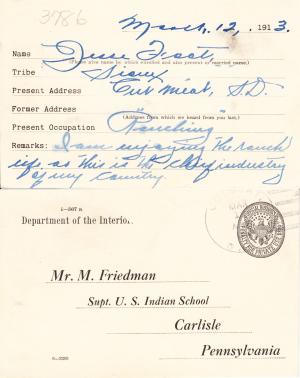 3786
March, 12, 1913.
Name Jesse
(Please give name by which enrolled and also present or married name.)
Tribe Sioux
Present Address Cut Meat, S.D.
Former Address
(Address from which we heard from you last.)
Present Occupation "Ranching"
Remarks: I am enjoying the ranch
life, as this is the chief industry
of my country.
5-367 a
Department of the Interior
Mr. M. Friedman
Supt. U. S. Indian School
Carlisle
Pennsylvania